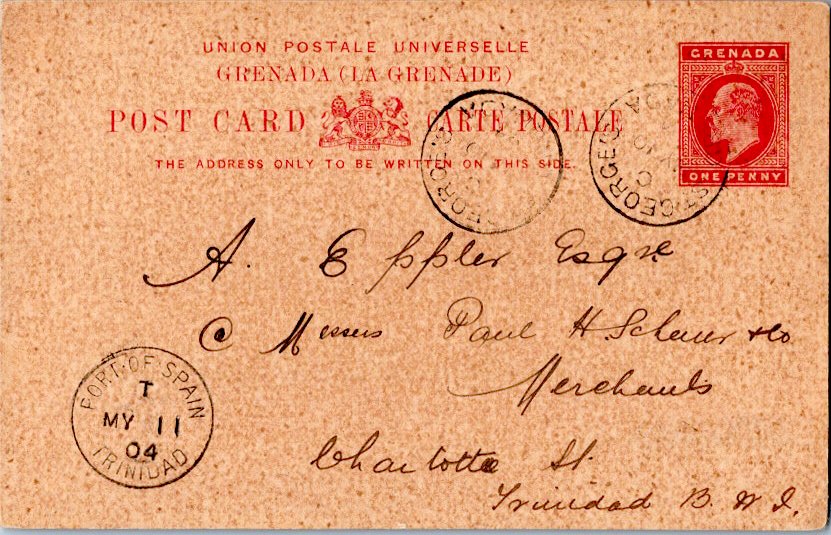 UNION POSTALE UNIVERSELLE
GRENADA (LA GRENADE)
POST CARD CARTE POSTALE
THE ADDRESS ONLY TO BE WRITTEN ON THIS SIDE.
GRENADA
ONE PENNY
ST GEORGE'S
A. Eppler Esqre
C Messers Paul H. Scherer & Co
Merchants
Charlotte St.
Trinidad B. W. I.
PORT OF SPAIN
T
MY 11
04
TRINIDAD